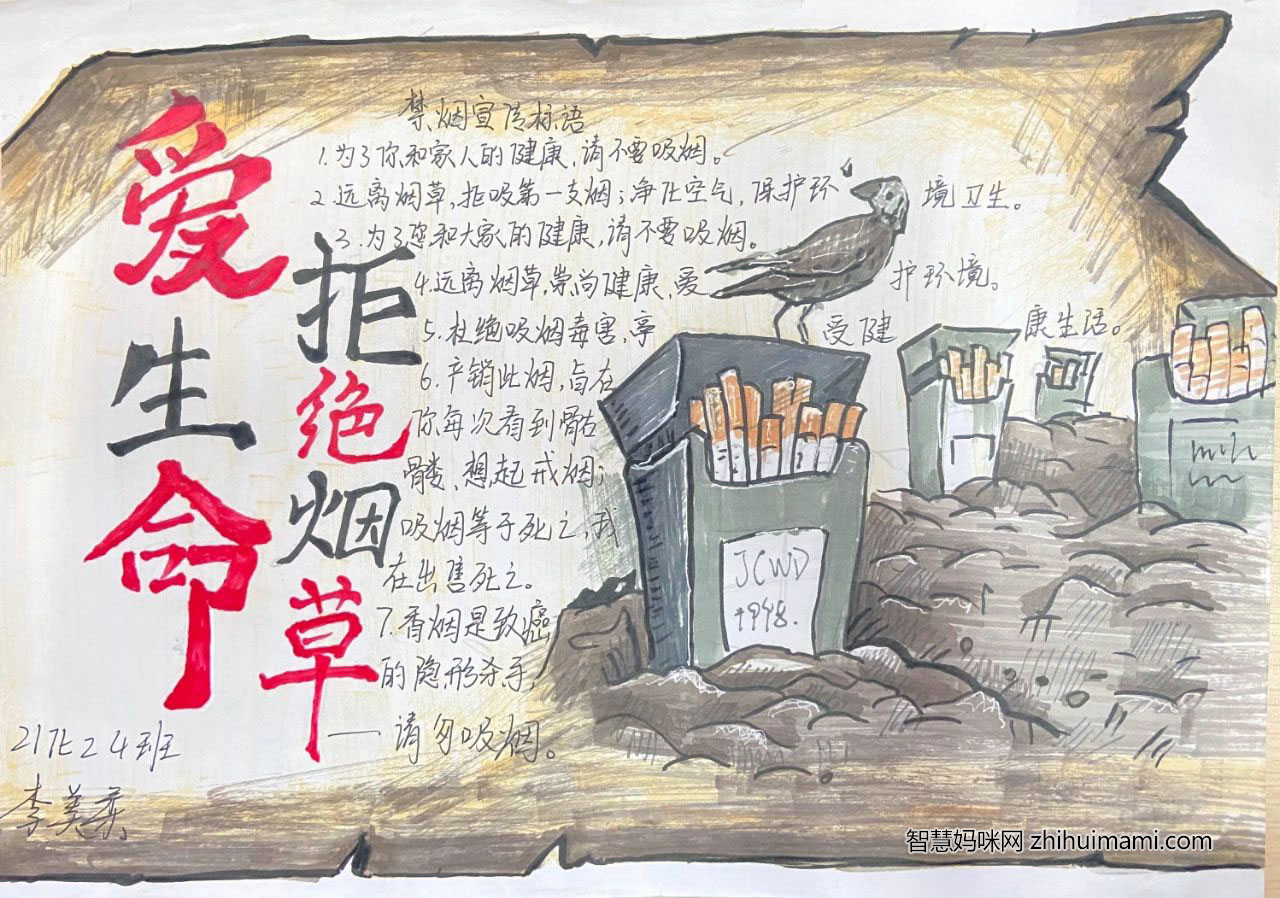 爱生命
拒绝烟草
禁烟宣传标语
1.为了你和家人的健康,请不要吸烟。
2.远离烟草,拒吸第一支烟;净化空气,保护环境卫生。
3.为了您和大家的健康,请不要吸烟。
4.远离烟草,崇尚健康,爱护环境。
5.杜绝吸烟毒害,享受健康生活。
6.产销此烟,旨在
你每次看到骷
髅、想起戒烟;
吸烟等于死亡,我
在出售死亡。
7.香烟是致癌
的隐形杀手,
——请勿吸烟。
JCWD
1998.
21化24班
李美
智慧妈咪网 zhihuimami.com